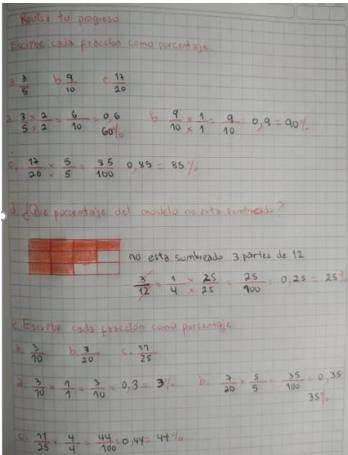 Revisa tu progreso
Escribe cada fracción como porcentaje.
a. 3/5 b. 9/10 c. 17/20
a. 3/5 × 2/2 = 6/10 = 0,6 60% b. 9/10 × 1/1 = 9/10 = 0,9 = 90%
c. 17/20 × 5/5 = 85/100 0,85 = 85%
d. ¿Que porcentaje del modelo no esta sombreado?
no esta sombreado 3 partes de 12
3/12 = 1/4 × 25/25 = 25/100 = 0,25 = 25%
Escribe cada fracción como porcentaje.
a. 3/10 b. 7/20 c. 11/25
a. 3/10 × 1/1 = 3/10 = 0,3 = 3% b. 7/20 × 5/5 = 35/100 = 0,35 35%
c. 11/25 × 4/4 = 44/100 = 0,44 = 44%